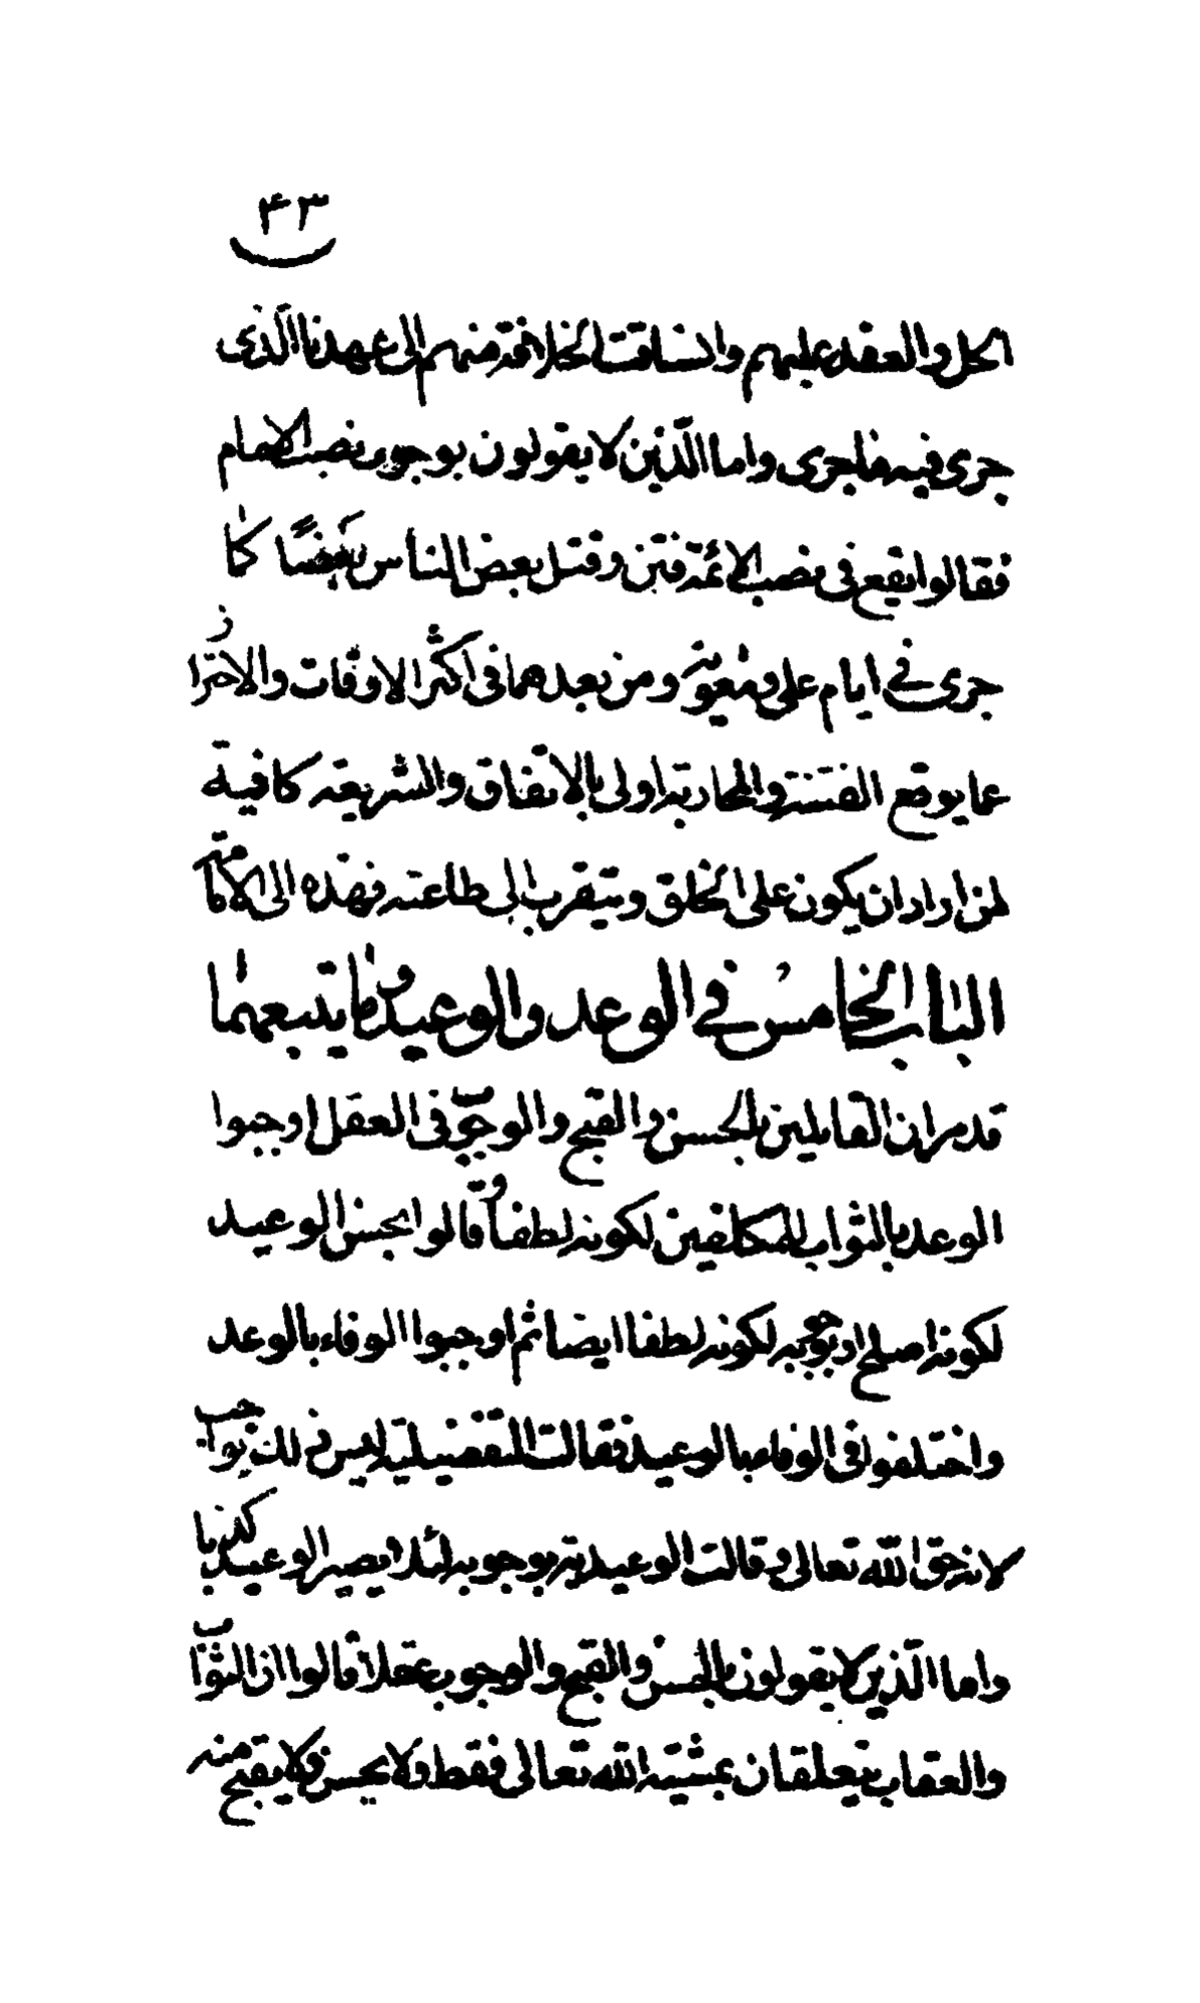 ۴۳
الحل والعقد عليهم وانساقت الخلافة منهم الى عهدنا الذى
جرى فيه ما جرى واما الّذين لا يقولون بوجوب نصب الامام
فقالوا يقع فى نصب الائمة فتن وقتل بعض الناس بعضًا كما
جرى فى ايام على ومعوية ومن بعدهما فى اكثر الاوقات والاحتراز
عما يوقع الفتنة والمحاربة اولى بالاتفاق والشريعة كافية
لمن اراد ان يكون على الحق ويتقرب الى طاعته فهذه الى الامامة
الباب الخامس فى الوعد والوعيد وما يتبعهما
قد مر ان القايلين بالحسن والقبح والوجوب فى العقل اوجبوا
الوعد بالثواب للمكلفين لكونه لطفا وقالوا بحسن الوعيد
لكونه اصلح او بوجوبه لكونه لطفا ايضا ثم اوجبوا الوفاء بالوعد
واختلفوا فى الوفاء بالوعيد فقالت التفضيلية ليس ذلك بواجب
لانه حق اللّه تعالى وقالت الوعيدية بوجوبه لئلا يصير الوعيد كذبا
واما الّذين لا يقولون بالحسن والقبح والوجوب عقلا قالوا ان الثواب
والعقاب يتعلقان بمشيّة اللّه تعالى فقط ولا يحسن ولا يقبح منه